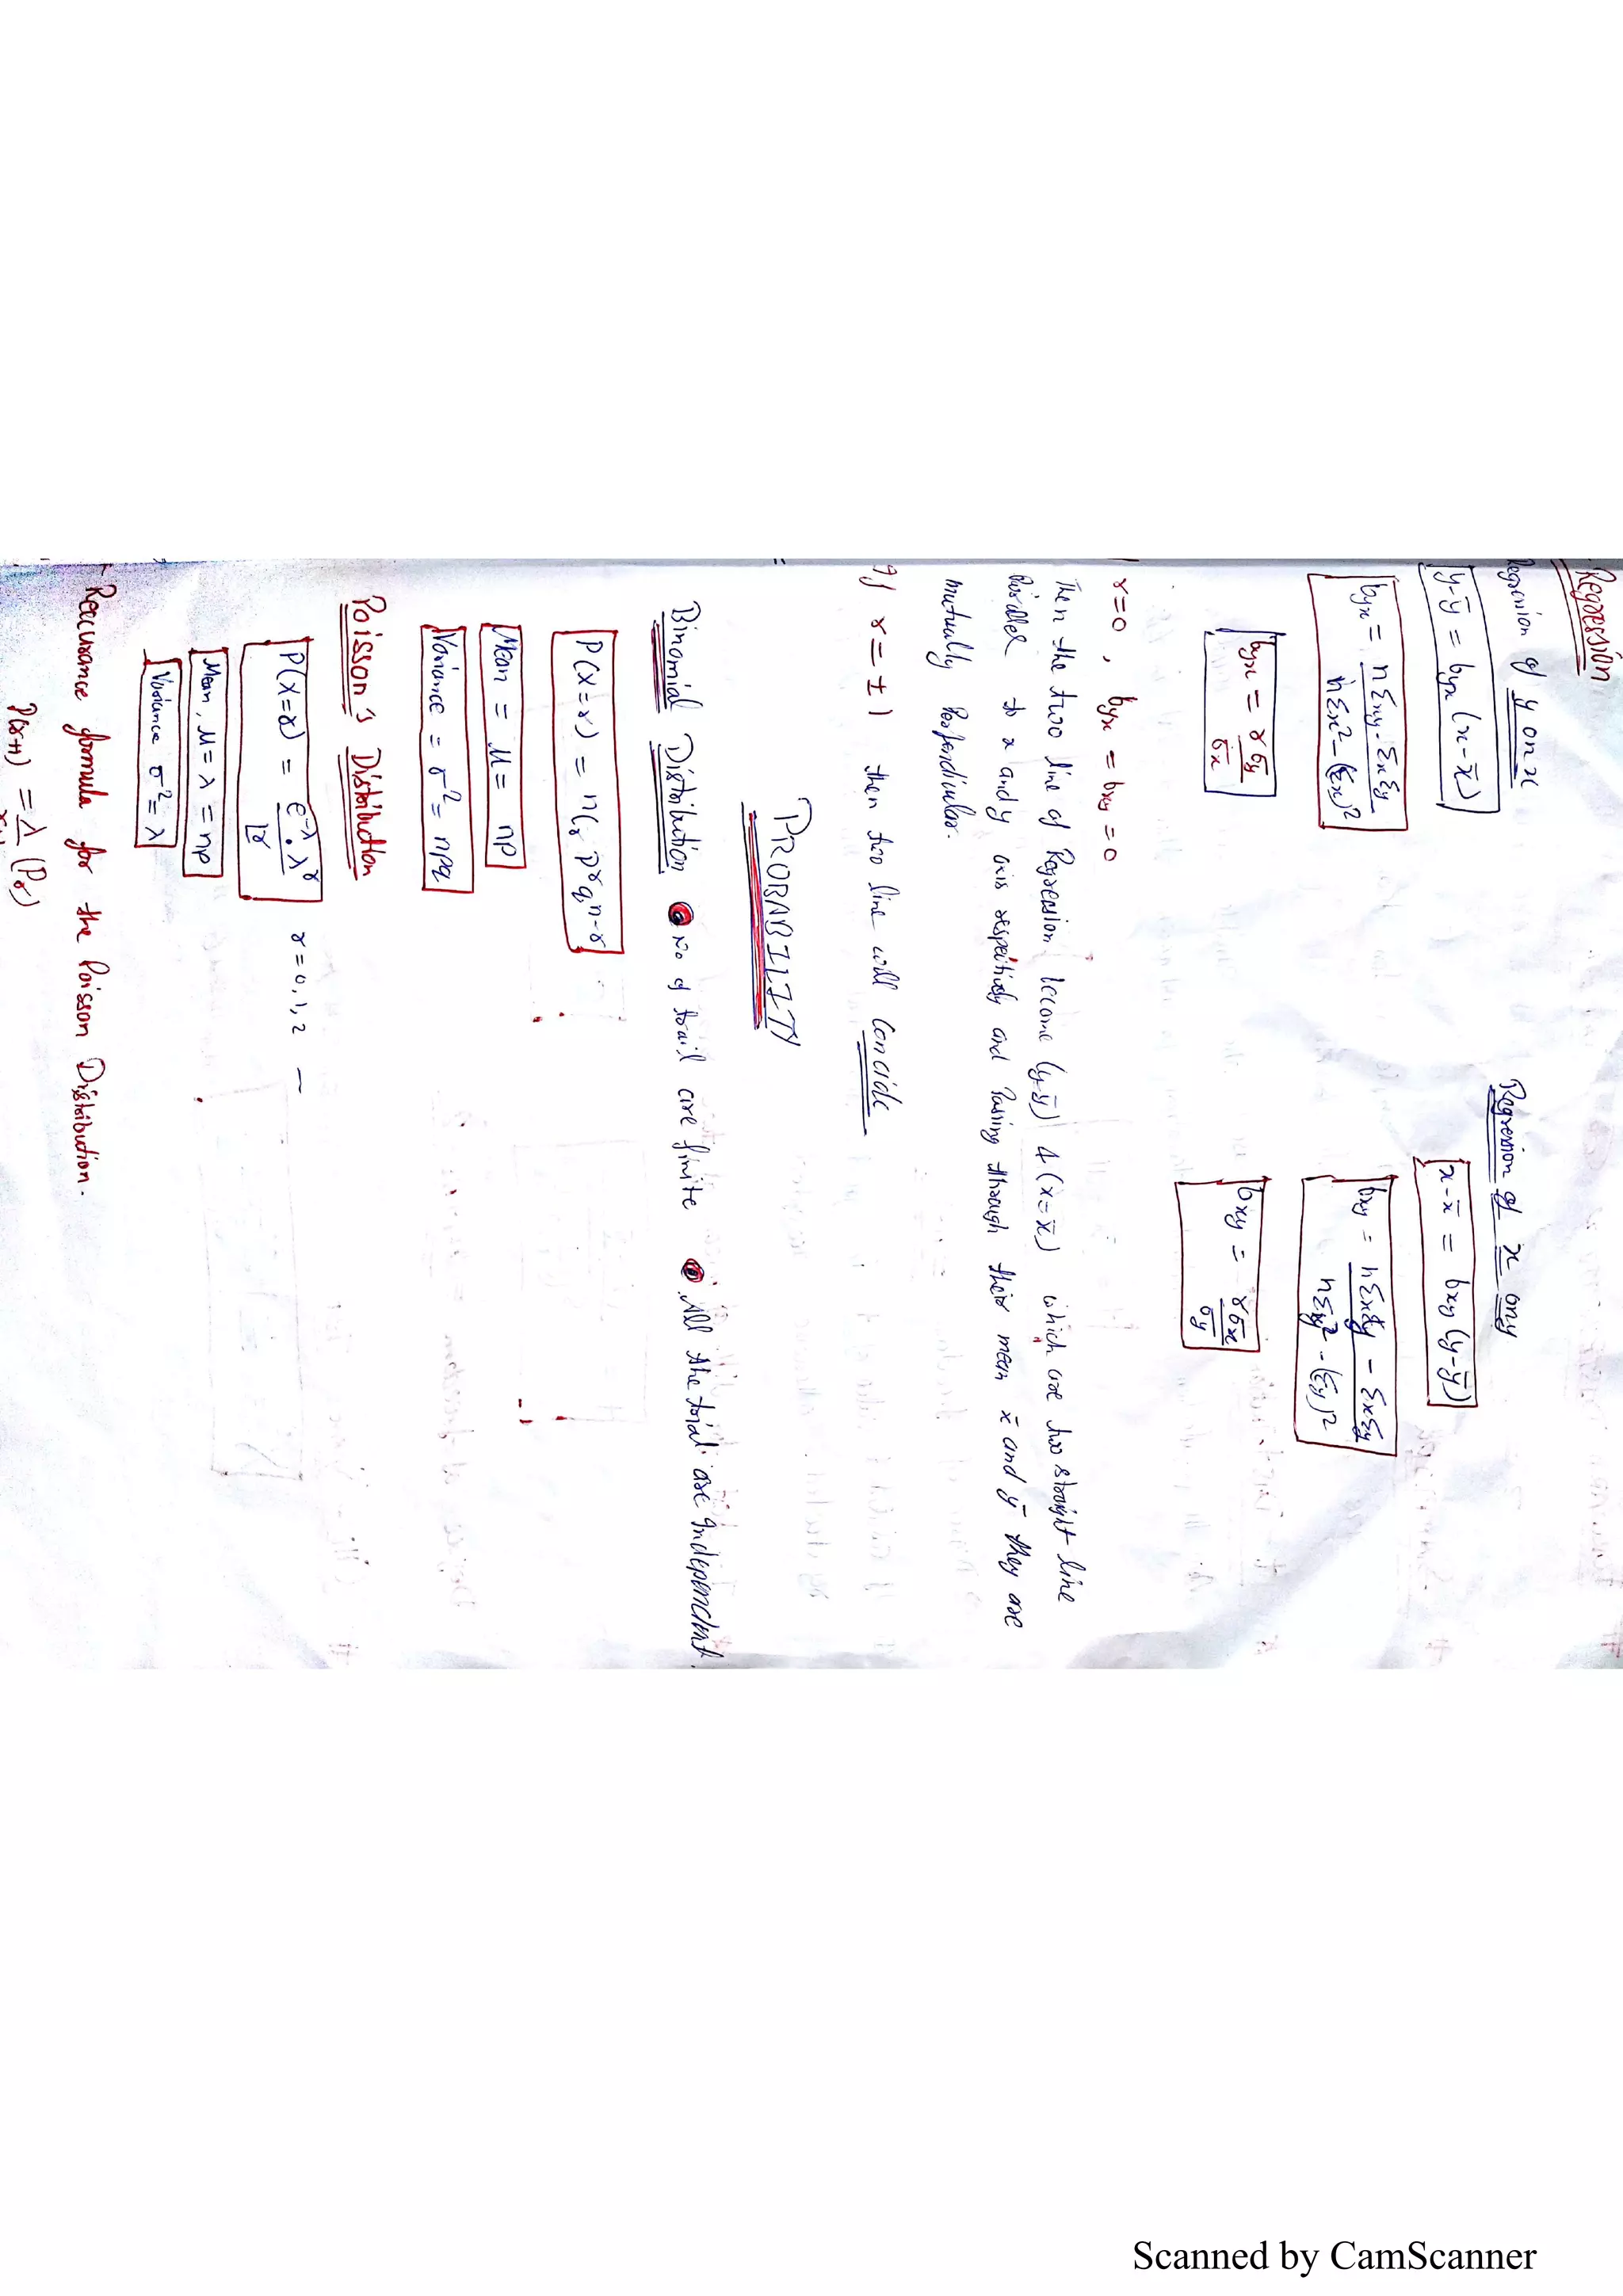 Regression
Regression of y on x
Regression of x on y
y-ȳ = byx (x-x̄)
x-x̄ = bxy (y-ȳ)
byx = nΣxy - ΣxΣy / nΣx² - (Σx)²
bxy = nΣxy - ΣxΣy / nΣy² - (Σy)²
byx = r σy / σx
bxy = r σx / σy
r=0, byx = bxy = 0
Then the two line of Regression become (y=ȳ) & (x=x̄) which are two straight line
Parallel to x and y axis respectively and Passing through their mean x̄ and ȳ they are
mutually Perpendicular.
If r = ±1 then two line will Concide
PROBABILITY
Binomial Distribution No of trail are finite All the trial are Independent.
P(X=r) = nCr pʳ qⁿ⁻ʳ
Mean = μ = np
Variance = σ² = npq
Poisson's Distribution
P(X=r) = e^-λ . λ^r / ⌊r r = 0, 1, 2 —
Mean, μ = λ = np
Variance σ² = λ
Recurrance formula for the Poisson Distribution.
P(r+1) = λ / r+1 (Pr)
Scanned by CamScanner